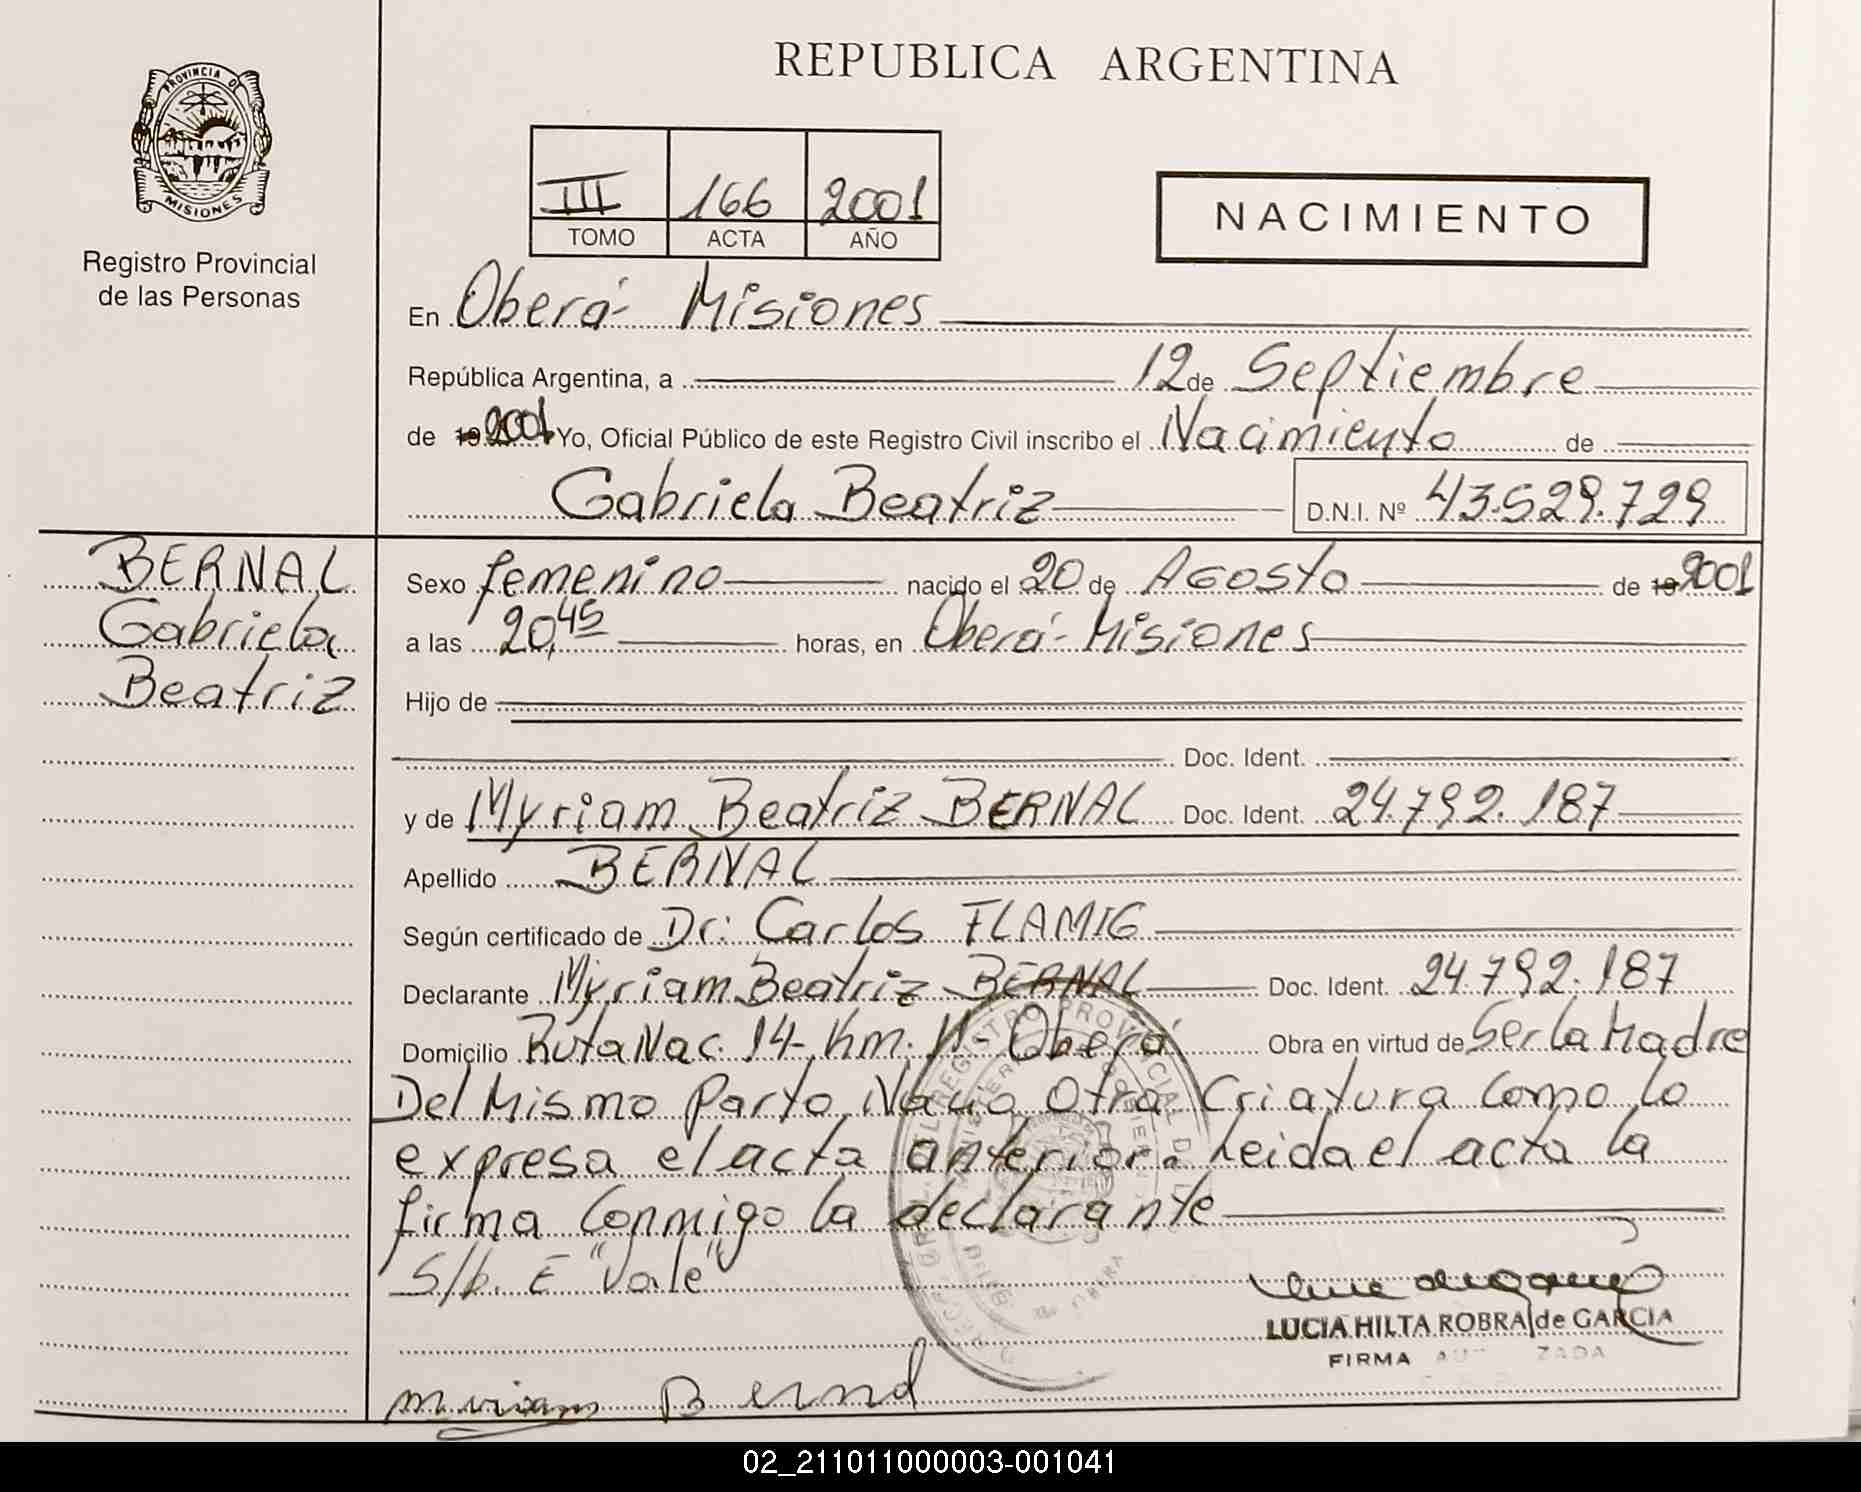 REPUBLICA ARGENTINA
PROVINCIA DE
MISIONES
Registro Provincial
de las Personas
III 166 2001
TOMO ACTA AÑO
NACIMIENTO
En Oberá - Misiones
República Argentina, a 12 de Septiembre
de 19 2001 Yo, Oficial Público de este Registro Civil inscribo el Nacimiento de
Gabriela Beatriz D.N.I. Nº 43.529.729
BERNAL
Gabriela
Beatriz
Sexo femenino nacido el 20 de Agosto de 19 2001
a las 20,45 horas, en Oberá - Misiones
Hijo de
Doc. Ident.
y de Myriam Beatriz BERNAL Doc. Ident. 24.792.187
Apellido BERNAL
Según certificado de Dr: Carlos FLAMIG
Declarante Myriam Beatriz BERNAL Doc. Ident. 24.792.187
Domicilio Ruta Nac. 14 - Km. 11 - Oberá Obra en virtud de Ser la Madre
Del Mismo parto Nació Otra Criatura como lo
expresa el acta anterior. Leida el acta la
firma Conmigo la declarante
S/b. E "Vale"
LUCIA HILTA ROBRA de GARCIA
FIRMA AU ZADA
REGISTRO PROVINCIAL DE
Miriam Bernal
02_211011000003-001041